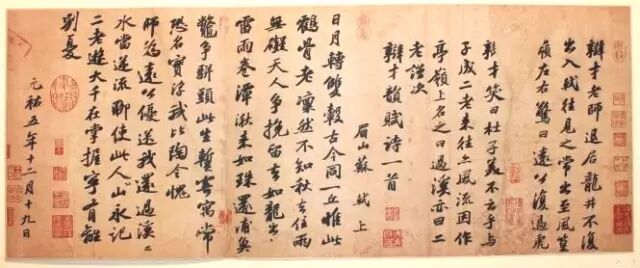 辯才老師退居龍井不復
出入軾往見之常出至風篁
嶺左右驚曰遠公復過虎
辯才笑曰杜子美不云乎與
子成二老來往亦風流因作
亭嶺上名之曰過溪亦曰二
老謹次
辯才韻賦詩一首
眉山蘇 軾 上
日月轉雙轂古今同一丘惟此
鶴骨老凜然不知秋去住兩
無礙天人爭挽留去如龍出
雷雨卷潭湫來如珠還浦魚
鼈爭駢頭此生暫寄寓常
恐名實浮我比陶令愧
師為遠公優送我還過溪溪
水當逆流聊使此人山永記
二老遊大千在掌握寧有離
別憂
元祐五年十二月十九日